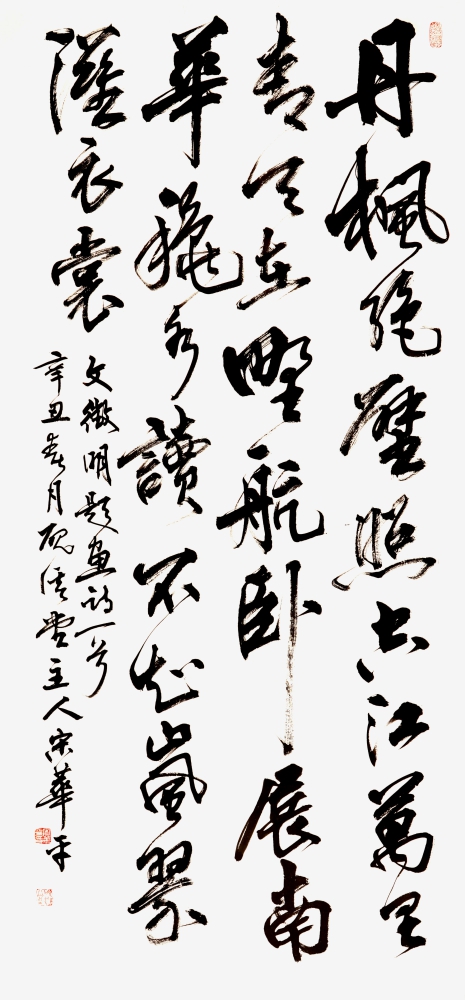 丹楓絕壁照空江萬里
青天在野航臥展南
華龝水讀不知嵐翠
溼衣裳
文徵明題畫詩一首
辛丑春月硯堂主人宋華平